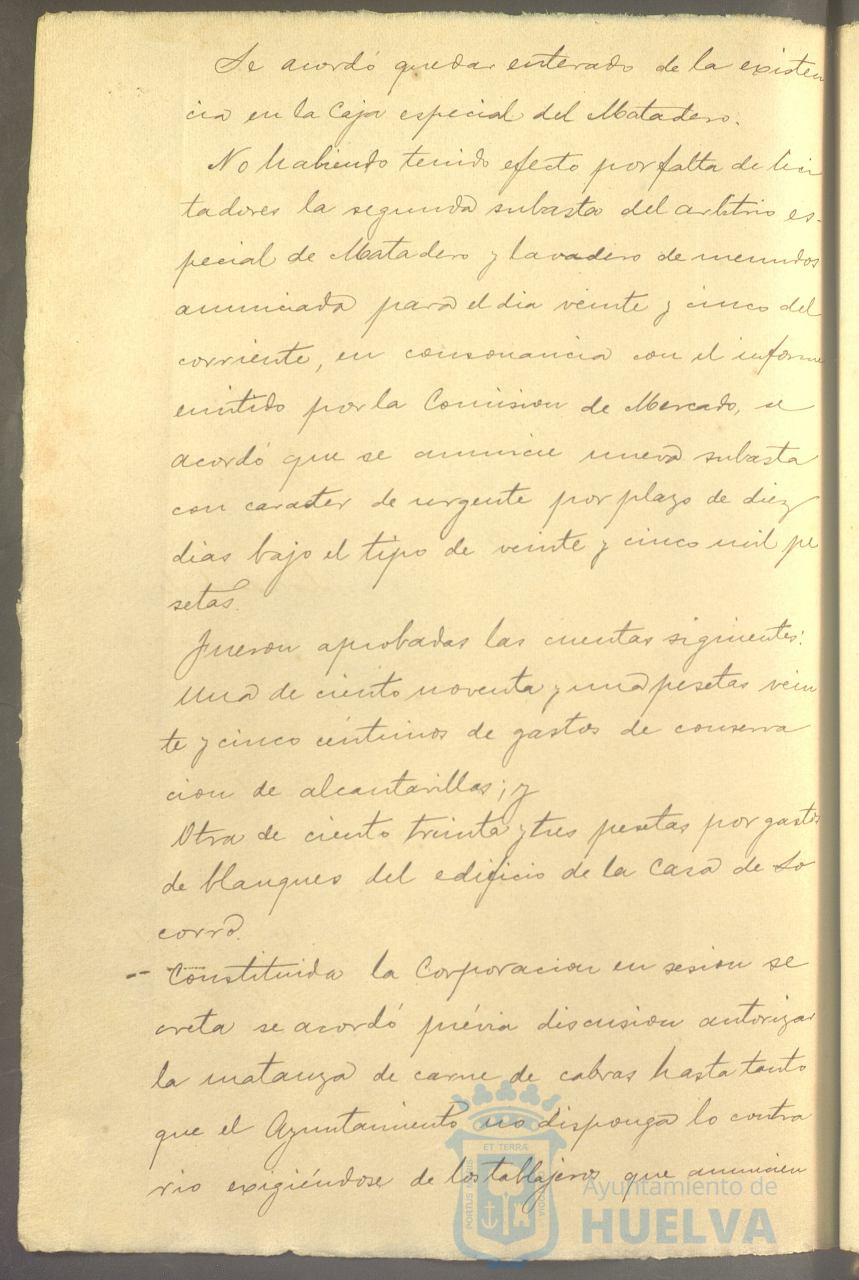 Se acordó quedar enterado de la existen
cia en la Caja especial del Matadero.
No habiendo tenido efecto por falta de lici
tadores la segunda subasta del arbitrio es-
pecial de Matadero y lavadero de menudos
anunciada para el dia veinte y cinco del
corriente, en consonancia con el informe
emitido por la Comision de Mercado, se
acordó que se anuncie nueva subasta
con caracter de urgente por plazo de diez
dias bajo el tipo de veinte y cinco mil pe
setas.
Fueron aprobadas las cuentas siguientes:
Una de ciento noventa y una pesetas vein
te y cinco céntimos de gastos de conserva
cion de alcantarillas; y
Otra de ciento treinta y tres pesetas por gastos
de blanqueo del edificio de la Casa de So
corro.
-- Constituida la Corporacion en sesion se
creta se acordó prévia discusion autorizar
la matanza de carne de cabras hasta tanto
que el Ayuntamiento no disponga lo contra
rio exigiéndose de los tablajeros que anuncien
ET TERRA
PORTUS
CUSTODIA
Ayuntamiento de
HUELVA